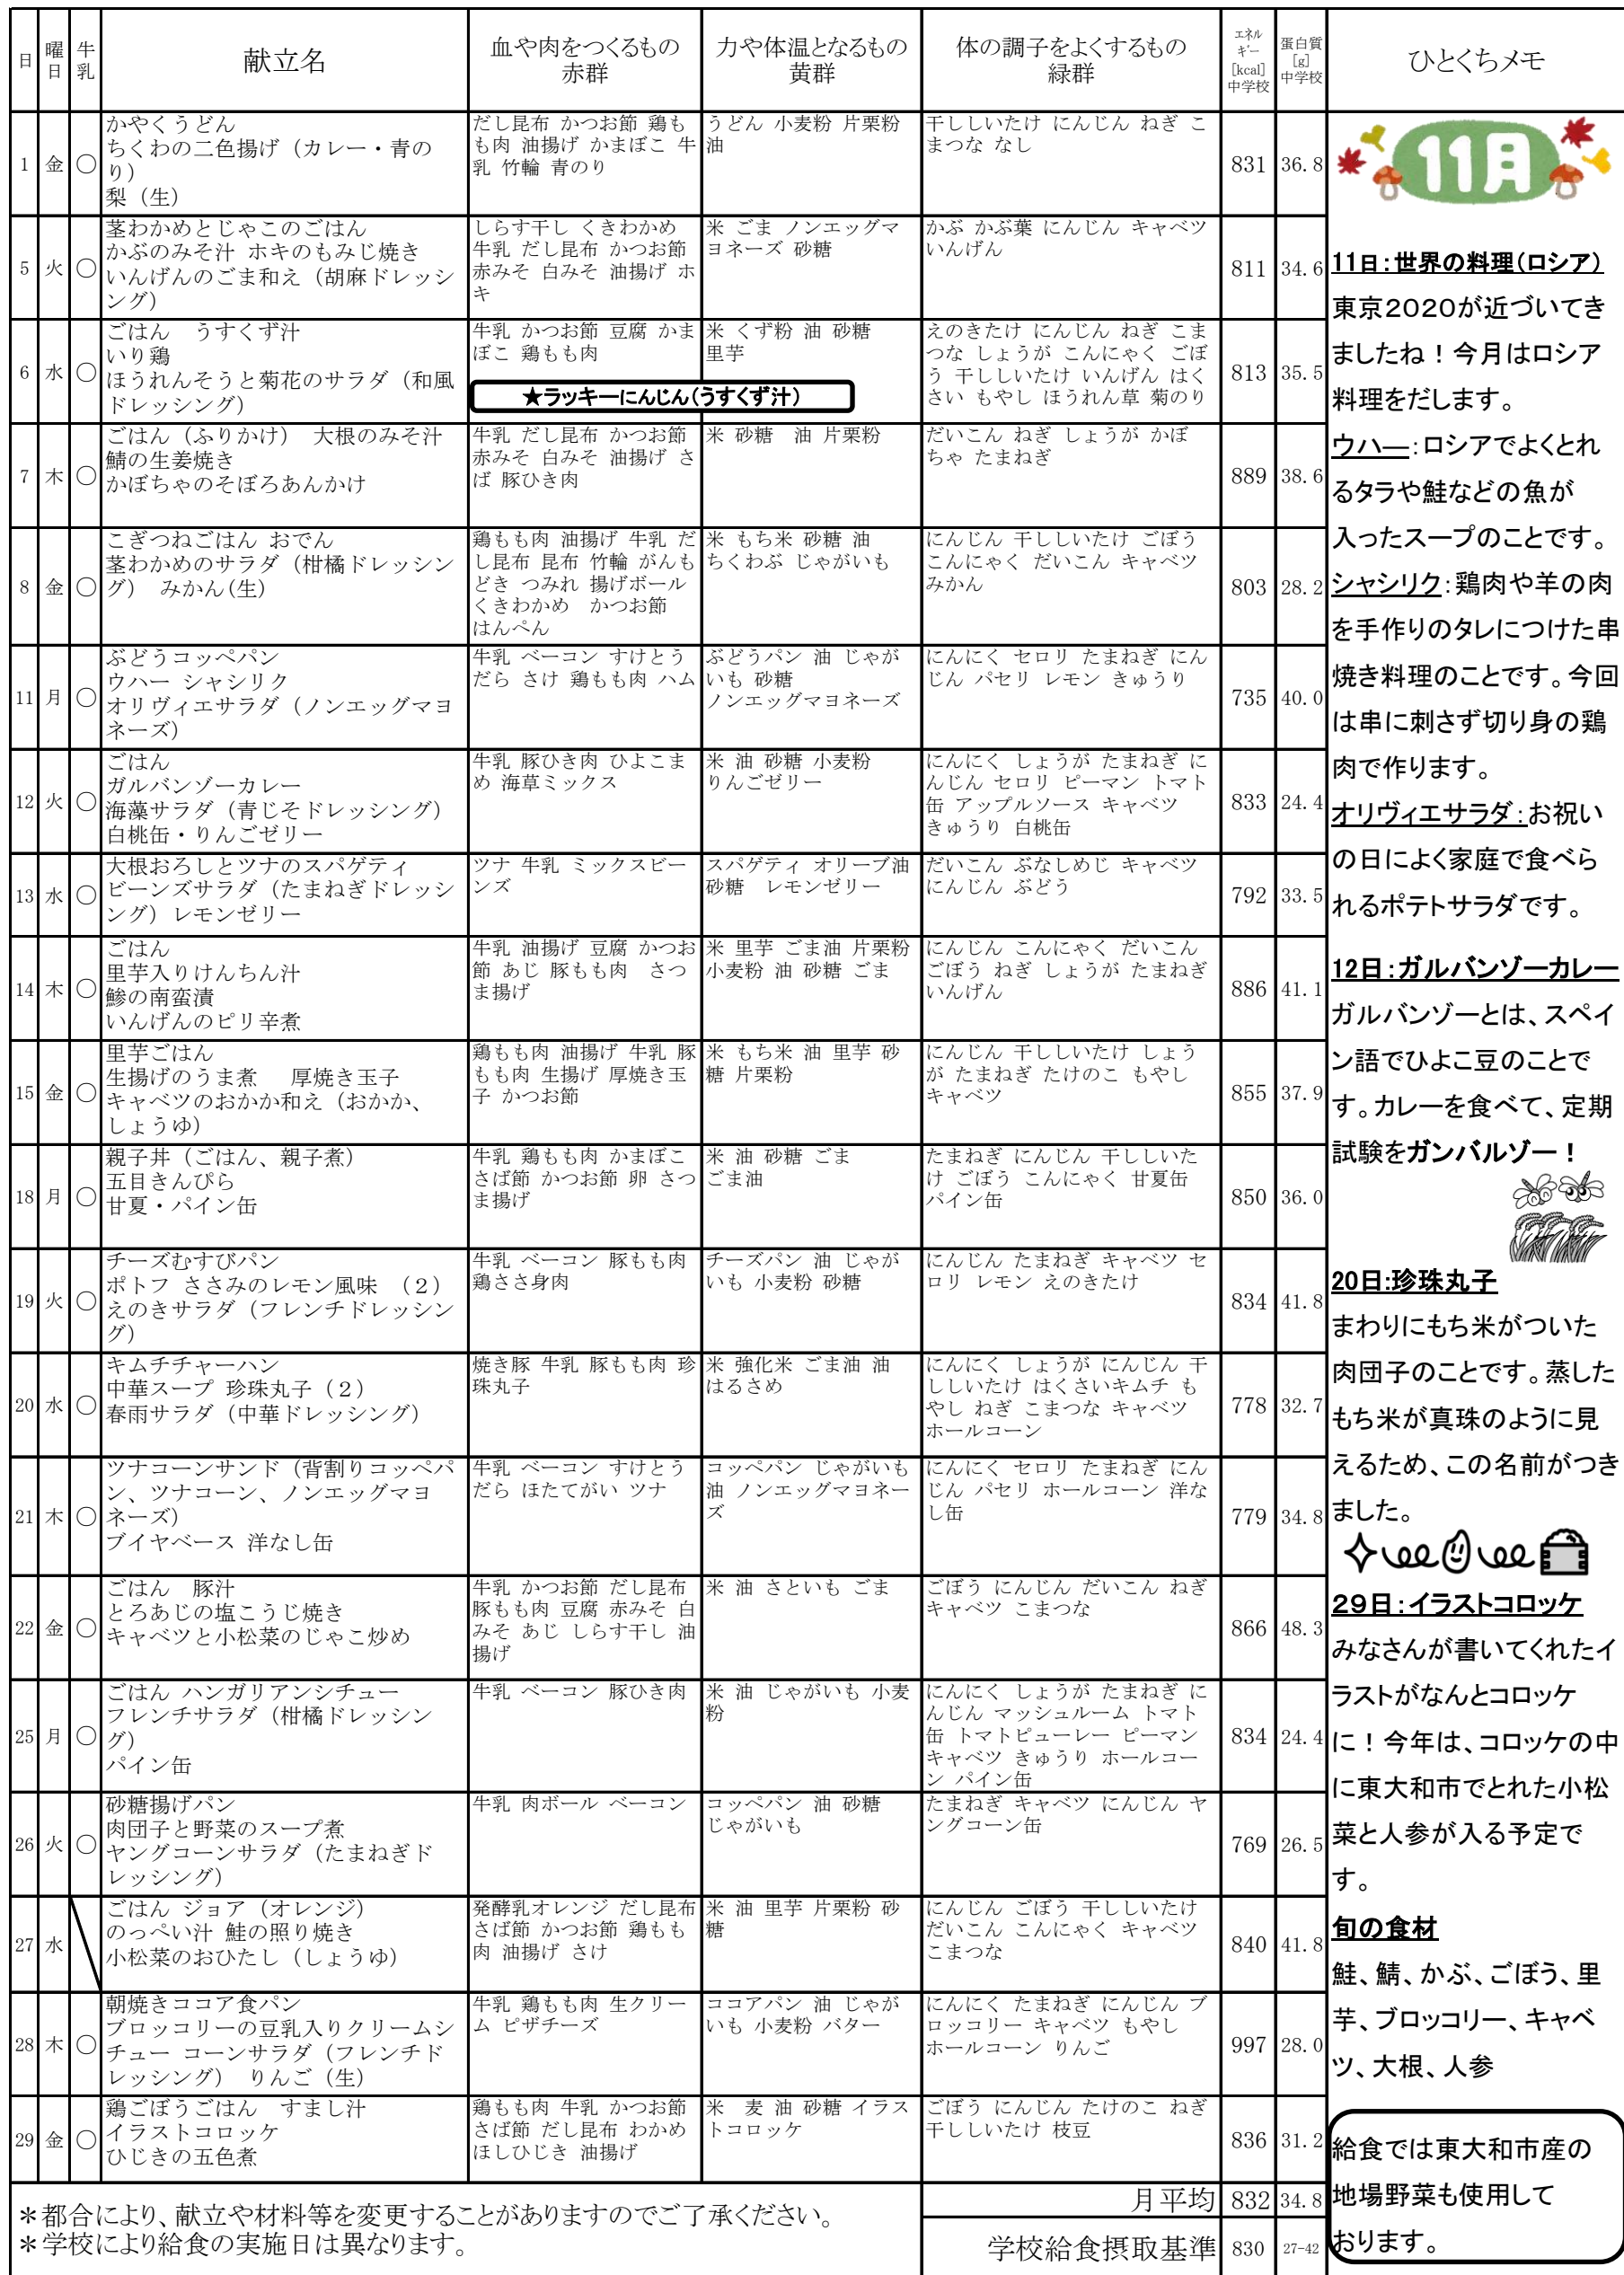 日 曜日 牛乳 献立名 血や肉をつくるもの 赤群 力や体温となるもの 黄群 体の調子をよくするもの 緑群 エネルギー [kcal] 中学校 蛋白質 [g] 中学校 ひとくちメモ
1 金 〇
かやくうどん
ちくわの二色揚げ（カレー・青の
り）
梨（生）
だし昆布 かつお節 鶏も
も肉 油揚げ かまぼこ 牛
乳 竹輪 青のり
うどん 小麦粉 片栗粉
油
干ししいたけ にんじん ねぎ こ
まつな なし
831 36.8
5 火 〇
茎わかめとじゃこのごはん
かぶのみそ汁 ホキのもみじ焼き
いんげんのごま和え（胡麻ドレッシ
ング）
しらす干し くきわかめ
牛乳 だし昆布 かつお節
赤みそ 白みそ 油揚げ ホ
キ
米 ごま ノンエッグマ
ヨネーズ 砂糖
かぶ かぶ葉 にんじん キャベツ
いんげん
811 34.6
6 水 〇
ごはん うすくず汁
いり鶏
ほうれんそうと菊花のサラダ（和風
ドレッシング）
牛乳 かつお節 豆腐 かま
ぼこ 鶏もも肉
米 くず粉 油 砂糖
里芋
★ラッキーにんじん（うすくず汁）
えのきたけ にんじん ねぎ こま
つな しょうが こんにゃく ごぼ
う 干ししいたけ いんげん はく
さい もやし ほうれん草 菊のり
813 35.5
7 木 〇
ごはん（ふりかけ） 大根のみそ汁
鯖の生姜焼き
かぼちゃのそぼろあんかけ
牛乳 だし昆布 かつお節
赤みそ 白みそ 油揚げ さ
ば 豚ひき肉
米 砂糖 油 片栗粉
だいこん ねぎ しょうが かぼ
ちゃ たまねぎ
889 38.6
8 金 〇
こぎつねごはん おでん
茎わかめのサラダ（柑橘ドレッシン
グ） みかん(生)
鶏もも肉 油揚げ 牛乳 だ
し昆布 昆布 竹輪 がんも
どき つみれ 揚げボール
くきわかめ かつお節
はんぺん
米 もち米 砂糖 油
ちくわぶ じゃがいも
にんじん 干ししいたけ ごぼう
こんにゃく だいこん キャベツ
みかん
803 28.2
11 月 〇
ぶどうコッペパン
ウハー シャシリク
オリヴィエサラダ（ノンエッグマヨ
ネーズ）
牛乳 ベーコン すけとう
だら さけ 鶏もも肉 ハム
ぶどうパン 油 じゃが
いも 砂糖
ノンエッグマヨネーズ
にんにく セロリ たまねぎ にん
じん パセリ レモン きゅうり
735 40.0
12 火 〇
ごはん
ガルバンゾーカレー
海藻サラダ（青じそドレッシング）
白桃缶・りんごゼリー
牛乳 豚ひき肉 ひよこま
め 海草ミックス
米 油 砂糖 小麦粉
りんごゼリー
にんにく しょうが たまねぎ に
んじん セロリ ピーマン トマト
缶 アップルソース キャベツ
きゅうり 白桃缶
833 24.4
13 水 〇
大根おろしとツナのスパゲティ
ビーンズサラダ（たまねぎドレッシ
ング）レモンゼリー
ツナ 牛乳 ミックスビー
ンズ
スパゲティ オリーブ油
砂糖 レモンゼリー
だいこん ぶなしめじ キャベツ
にんじん ぶどう
792 33.5
14 木 〇
ごはん
里芋入りけんちん汁
鯵の南蛮漬
いんげんのピリ辛煮
牛乳 油揚げ 豆腐 かつお
節 あじ 豚もも肉 さつ
ま揚げ
米 里芋 ごま油 片栗粉
小麦粉 油 砂糖 ごま
にんじん こんにゃく だいこん
ごぼう ねぎ しょうが たまねぎ
いんげん
886 41.1
15 金 〇
里芋ごはん
生揚げのうま煮 厚焼き玉子
キャベツのおかか和え（おかか、
しょうゆ）
鶏もも肉 油揚げ 牛乳 豚
もも肉 生揚げ 厚焼き玉
子 かつお節
米 もち米 油 里芋 砂
糖 片栗粉
にんじん 干ししいたけ しょう
が たまねぎ たけのこ もやし
キャベツ
855 37.9
18 月 〇
親子丼（ごはん、親子煮）
五目きんぴら
甘夏・パイン缶
牛乳 鶏もも肉 かまぼこ
さば節 かつお節 卵 さつ
ま揚げ
米 油 砂糖 ごま
ごま油
たまねぎ にんじん 干ししいた
け ごぼう こんにゃく 甘夏缶
パイン缶
850 36.0
19 火 〇
チーズむすびパン
ポトフ ささみのレモン風味 （2）
えのきサラダ（フレンチドレッシン
グ）
牛乳 ベーコン 豚もも肉
鶏ささ身肉
チーズパン 油 じゃが
いも 小麦粉 砂糖
にんじん たまねぎ キャベツ セ
ロリ レモン えのきたけ
834 41.8
20 水 〇
キムチチャーハン
中華スープ 珍珠丸子（2）
春雨サラダ（中華ドレッシング）
焼き豚 牛乳 豚もも肉 珍
珠丸子
米 強化米 ごま油 油
はるさめ
にんにく しょうが にんじん 干
ししいたけ はくさいキムチ も
やし ねぎ こまつな キャベツ
ホールコーン
778 32.7
21 木 〇
ツナコーンサンド（背割りコッペパ
ン、ツナコーン、ノンエッグマヨ
ネーズ）
ブイヤベース 洋なし缶
牛乳 ベーコン すけとう
だら ほたてがい ツナ
コッペパン じゃがいも
油 ノンエッグマヨネー
ズ
にんにく セロリ たまねぎ にん
じん パセリ ホールコーン 洋な
し缶
779 34.8
22 金 〇
ごはん 豚汁
とろあじの塩こうじ焼き
キャベツと小松菜のじゃこ炒め
牛乳 かつお節 だし昆布
豚もも肉 豆腐 赤みそ 白
みそ あじ しらす干し 油
揚げ
米 油 さといも ごま
ごぼう にんじん だいこん ねぎ
キャベツ こまつな
866 48.3
25 月 〇
ごはん ハンガリアンシチュー
フレンチサラダ（柑橘ドレッシン
グ）
パイン缶
牛乳 ベーコン 豚ひき肉
米 油 じゃがいも 小麦
粉
にんにく しょうが たまねぎ に
んじん マッシュルーム トマト
缶 トマトピューレー ピーマン
キャベツ きゅうり ホールコー
ン パイン缶
834 24.4
26 火 〇
砂糖揚げパン
肉団子と野菜のスープ煮
ヤングコーンサラダ（たまねぎド
レッシング）
牛乳 肉ボール ベーコン
コッペパン 油 砂糖
じゃがいも
たまねぎ キャベツ にんじん ヤ
ングコーン缶
769 26.5
27 水
ごはん ジョア（オレンジ）
のっぺい汁 鮭の照り焼き
小松菜のおひたし（しょうゆ）
発酵乳オレンジ だし昆布
さば節 かつお節 鶏もも
肉 油揚げ さけ
米 油 里芋 片栗粉 砂
糖
にんじん ごぼう 干ししいたけ
だいこん こんにゃく キャベツ
こまつな
840 41.8
28 木 〇
朝焼きココア食パン
ブロッコリーの豆乳入りクリームシ
チュー コーンサラダ（フレンチド
レッシング） りんご（生）
牛乳 鶏もも肉 生クリー
ム ピザチーズ
ココアパン 油 じゃが
いも 小麦粉 バター
にんにく たまねぎ にんじん ブ
ロッコリー キャベツ もやし
ホールコーン りんご
997 28.0
29 金 〇
鶏ごぼうごはん すまし汁
イラストコロッケ
ひじきの五色煮
鶏もも肉 牛乳 かつお節
さば節 だし昆布 わかめ
ほしひじき 油揚げ
米 麦 油 砂糖 イラス
トコロッケ
ごぼう にんじん たけのこ ねぎ
干ししいたけ 枝豆
836 31.2
＊都合により、献立や材料等を変更することがありますのでご了承ください。
＊学校により給食の実施日は異なります。
月平均 832 34.8
学校給食摂取基準 830 27-42
11月
11日：世界の料理（ロシア）
東京２０２０が近づいてき
ましたね！今月はロシア
料理をだします。
ウハー：ロシアでよくとれ
るタラや鮭などの魚が
入ったスープのことです。
シャシリク：鶏肉や羊の肉
を手作りのタレにつけた串
焼き料理のことです。今回
は串に刺さず切り身の鶏
肉で作ります。
オリヴィエサラダ：お祝い
の日によく家庭で食べら
れるポテトサラダです。
12日：ガルバンゾーカレー
ガルバンゾーとは、スペイ
ン語でひよこ豆のことで
す。カレーを食べて、定期
試験をガンバルゾー！
20日:珍珠丸子
まわりにもち米がついた
肉団子のことです。蒸した
もち米が真珠のように見
えるため、この名前がつき
ました。
２９日：イラストコロッケ
みなさんが書いてくれたイ
ラストがなんとコロッケ
に！今年は、コロッケの中
に東大和市でとれた小松
菜と人参が入る予定で
す。
旬の食材
鮭、鯖、かぶ、ごぼう、里
芋、ブロッコリー、キャベ
ツ、大根、人参
給食では東大和市産の
地場野菜も使用して
おります。